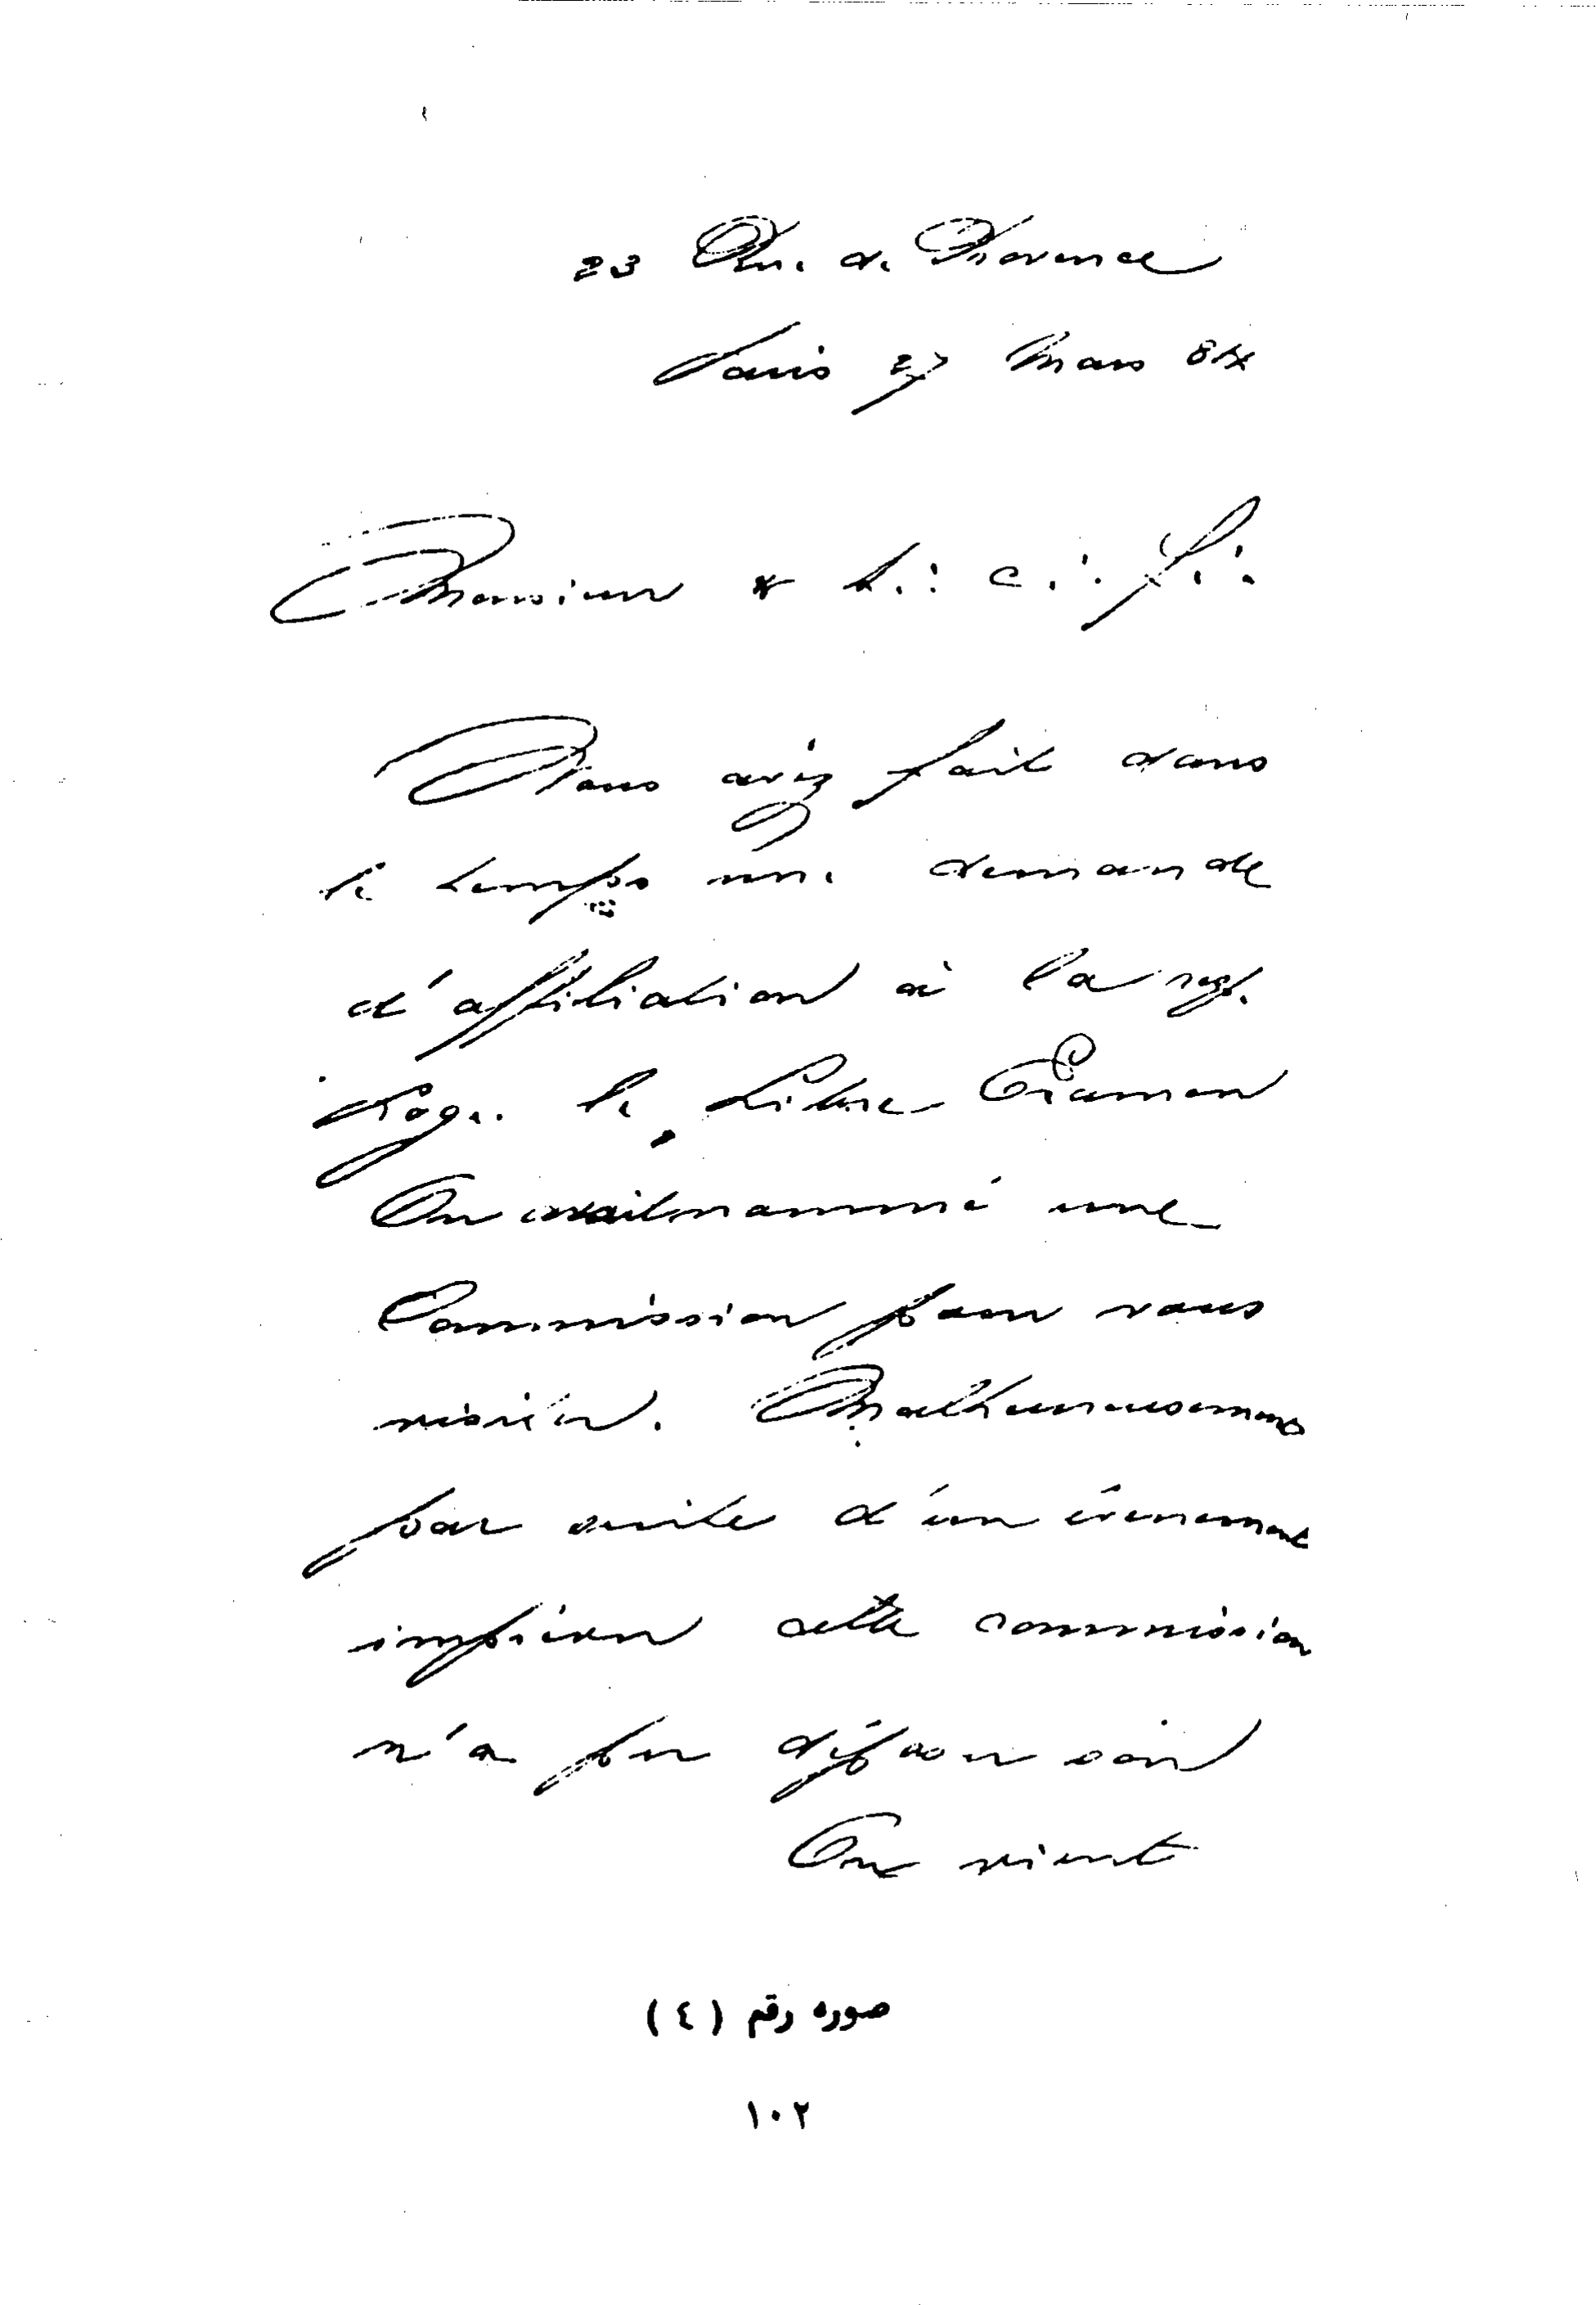 23 Rue de Provence
Paris 27 Mars 84
Monsieur & T∴ C∴ F∴
Vous avez fait dans
le temps une demande
d'affiliation à la
Loge le Libre Examen
On avait nommé une
Commission pour vous
visiter. Malheureusement
par suite d'un évènement
imprévu cette commission
n'a pu
On vient
صوره رقم (٤)
١٠٢